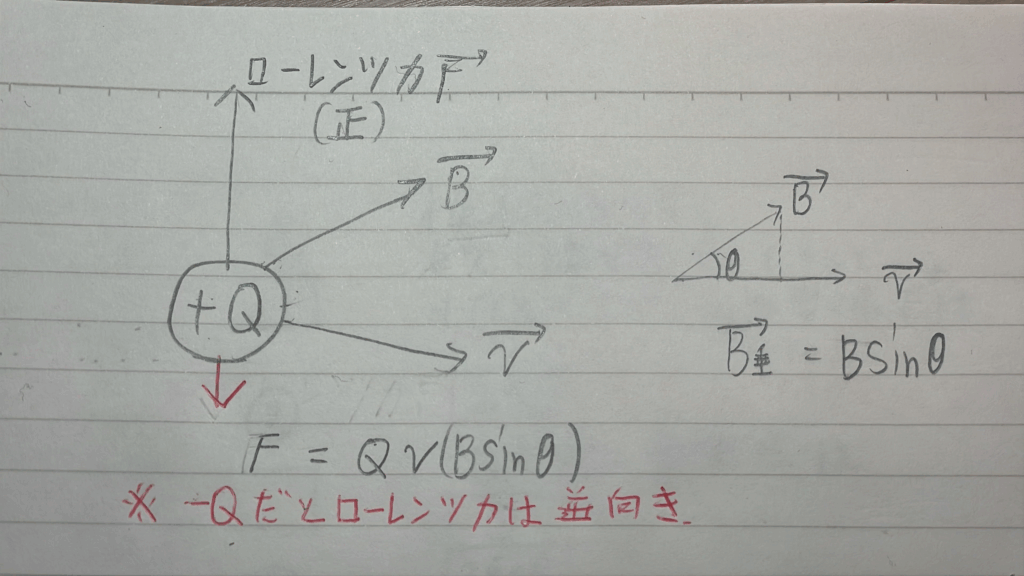 ローレンツ力F→
(正)
B→
+Q
v→
B→
θ
v→
B垂→ = Bsinθ
F = Qv(Bsinθ)
※ -Qだとローレンツ力は逆向き